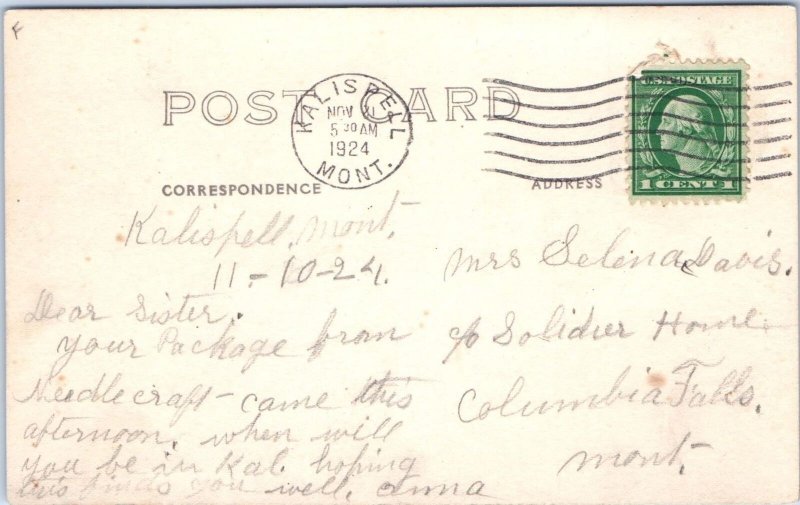 F
POST CARD
KALISPELL
NOV
5 30 AM
1924
MONT.
U.S. POSTAGE
1 CENT 1
CORRESPONDENCE
ADDRESS
Kalispell, Mont,
11-10-24.
Dear Sister.
your Package from
Needlecraft - came this
afternoon, when will
you be in Kal. hoping
this finds you well, anna
Mrs Selena Davis.
c/o Solidier Home
Columbia Falls.
Mont,